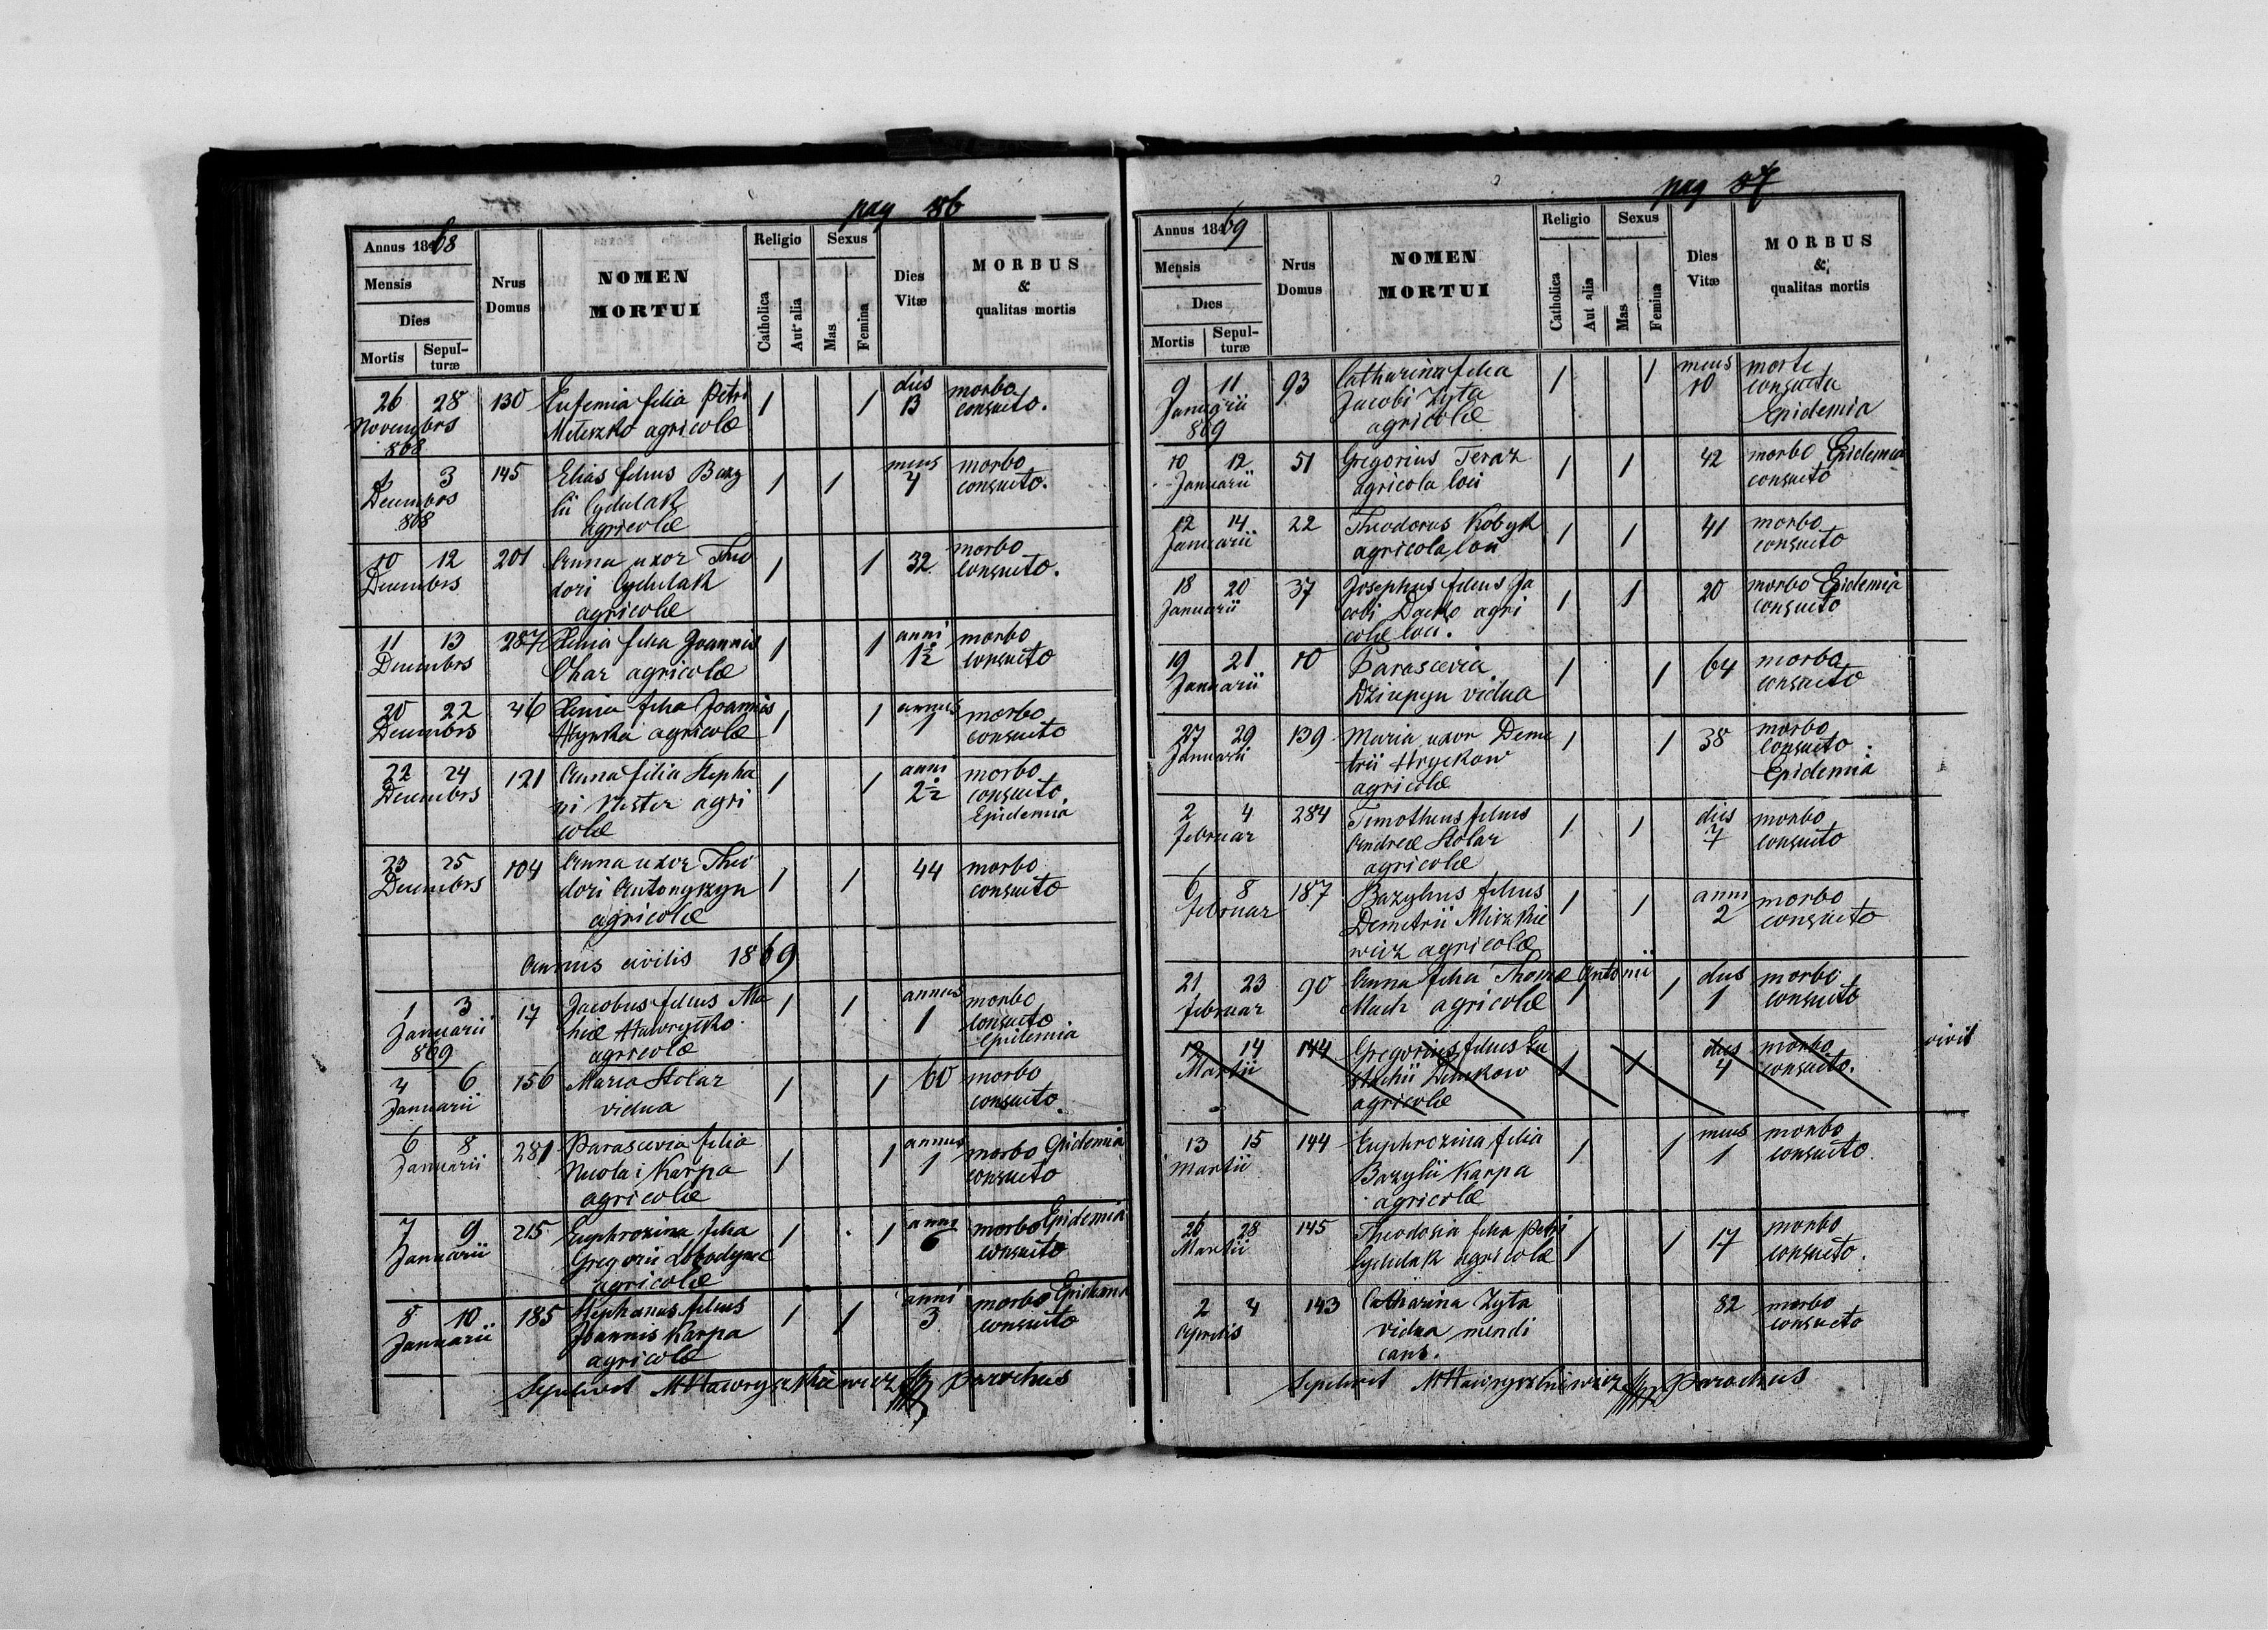 pag 86
Annus 1868
Mensis
Dies
Mortis Sepul-
turæ
Nrus
Domus
NOMEN
MORTUI
Religio
Catholica
Aut alia
Sexus
Mas
Femina
Dies
Vitæ
MORBUS
&
qualitas mortis
26 28 130 Eufemia filia Petri 1 1 dies morbo
Novembrs Meteszko agricolæ 13 consueto.
868
1 3 145 Elias filius Bazy 1 1 mens morbo
Decembrs lii Cydulak 4 consueto.
868 agricolæ
10 12 201 Anna uxor Theo 1 1 32 morbo
Decembrs dori Cydulak consueto.
agricolæ
11 13 287 Xenia filia Joannis 1 1 anni morbo
Decembrs Ohar agricolæ 1½ consueto
20 22 46 Xenia filia Joannis 1 1 annus morbo
Decembrs Hynka agricolæ 1 consueto
22 24 121 Anna filia Stepha 1 1 anni morbo
Decembrs ni Nester agri 2½ consueto.
colæ Epidemia
23 25 104 Anna uxor Theo 1 1 44 morbo
Decembrs dori Antonyszyn consueto
agricolæ
Annus civilis 1869
1 3 17 Jacobus filius Ma 1 1 annus morbo
Januarii thiæ Hawryszko 1 consueto.
869 agricolæ Epidemia
4 6 156 Maria Stolar 1 1 60 morbo
Januarii vidua consueto.
6 8 281 Parascevia filia 1 1 annus morbo Epidemia
Januarii Nicolai Karpa 1 consueto
agricolæ
7 9 215 Euphrozina filia 1 1 anni morbo Epidemia
Januarii Gregorii Lobodynec 6 consueto
agricolæ
8 10 185 Stephanus filius 1 1 anni morbo Epidemia
Januarii Joannis Karpa 3 consueto
agricolæ
Sepelivit MHawryszkiewicz parochus
pag 87
Annus 1869
Mensis
Dies
Mortis Sepul-
turæ
Nrus
Domus
NOMEN
MORTUI
Religio
Catholica
Aut alia
Sexus
Mas
Femina
Dies
Vitæ
MORBUS
&
qualitas mortis
9 11 93 Catharina filia 1 1 mens morte
Januarii Jacobi Zyta 10 consueta
869 agricolæ Epidemia
10 12 51 Gregorius Teraz 1 1 42 morbo Epidemia
Januarii agricola loci consueto
12 14 22 Theodorus Kobyk 1 1 41 morbo
Januarii agricola loci consueto
18 20 37 Josephus filius Ja 1 1 20 morbo Epidemia
Januarii cobi Dacko agri consueto
colæ loci.
19 21 10 Parascevia 1 1 64 morbo
Januarii Dziupyn vidua consueto
27 29 139 Maria uxor Deme 1 1 38 morbo
Januarii trii Hryckow consueto:
agricolæ Epidemia
2 4 284 Timotheus filius 1 1 dies morbo
Februar Andreæ Stolar 7 consueto
agricolæ
6 8 187 Bazylius filius 1 1 anni morbo
Februar Demetrii Miszkie 2 consueto
wicz agricolæ
21 23 90 Anna filia Thomæ Antonii 1 1 dies morbo
Februar Mach agricolæ 1 consueto
12 14 144 Gregorius filius Eu 1 1 dies morbo vivit
Martii stachii Denkow 4 consueto.
agricolæ
13 15 144 Euphrozina filia 1 1 mens morbo
Martii Bazylii Karpa 1 consueto.
agricolæ
26 28 145 Theodosia filia Petri 1 1 17 morbo
Martii Cydulak agricolæ consueto.
2 4 143 Catharina Zyta 82 morbo
Aprilis vidua mendi consueto
cans.
Sepelivit MHawryszkiewicz Parochus